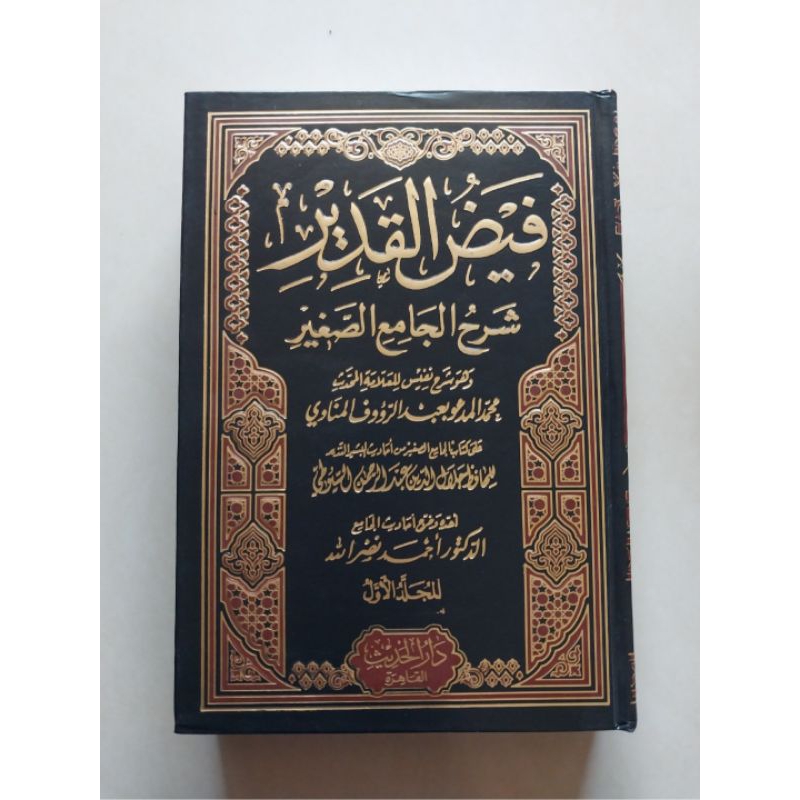 فَيْضُ القَدِيْرِ
شَرْحُ الجَامِعِ الصَّغِيْرِ
وهو شرح نفيس للعلامة المحدث
محمد المدعو بعبد الرؤوف المناوي
على كتاب الجامع الصغير من أحاديث البشير النذير
للحافظ جلال الدين عبد الرحمن السيوطي
أحاديث الجامع
الدكتور أحمد نصر الله
المُجَلَّدُ الأوَّلُ
دار الحديث
القاهرة